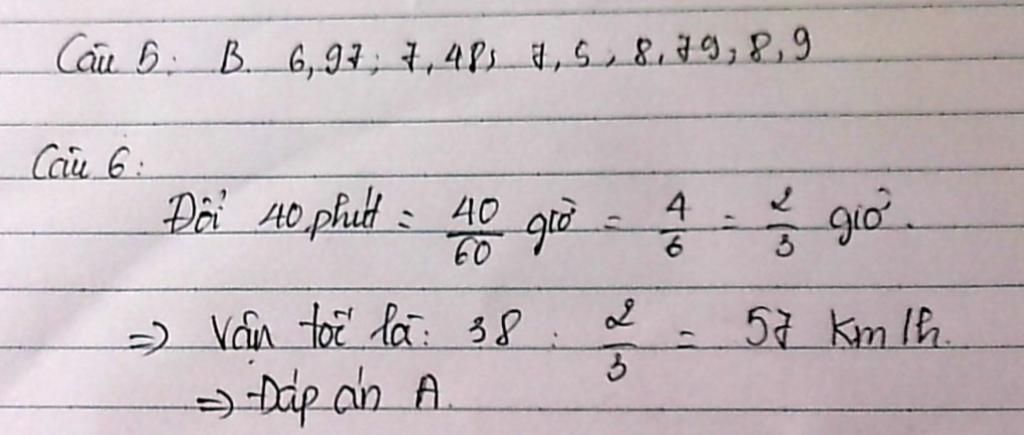 Câu 5: B. 6,97; 7,48; 7,5; 8,79; 8,9
Câu 6:
Đổi 40 phút = 40/60 giờ = 4/6 = 2/3 giờ.
=> Vận tốc là: 38 : 2/3 = 57 Km/h.
=> Đáp án A.